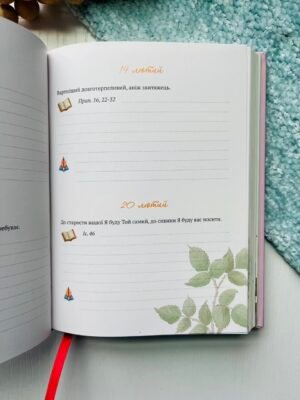 19 лютий
Вартніший довготерпеливий, аніж звитяжець.
Прип. 16, 22-32
20 лютий
До старости вашої Я буду Той самий, до сивини Я буду вас носити.
Іс. 46